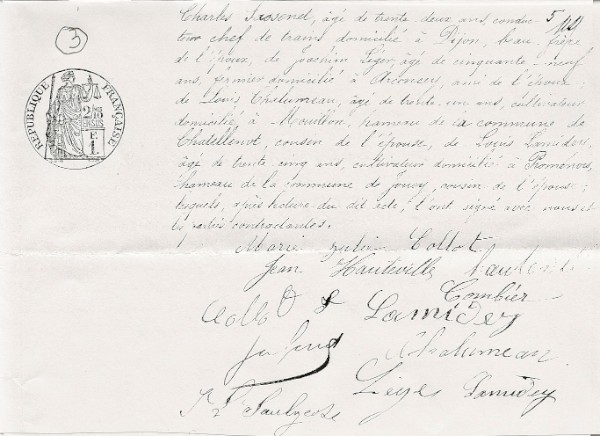 3
Charles Trosenet, âgé de trente deux ans, conduc-
teur chef de trains domicilié à Dijon, beau-frère
de l'époux, de Joachim Léger, âgé de cinquante-neuf
ans, fermier domicilié à Arconcey, ami de l'époux ;
de Louis Chalumeau, âgé de trente un ans, cultivateur
domicilié à hameau de la commune de
Chatellenot, cousin de l'épouse, de Louis Lamidey,
âgé de trente cinq ans, cultivateur domicilié à Promenois,
hameau de la commune de Jouey, cousin de l'épouse ;
lesquels, après lecture du dit acte, l'ont signé avec nous et
les parties contractantes.
REPUBLIQUE FRANÇAISE
2/10
E
1.
Marie Collot
Jean Hauteville
Combier
Collot Lamidey
Chalumeau
Léger Lamidey